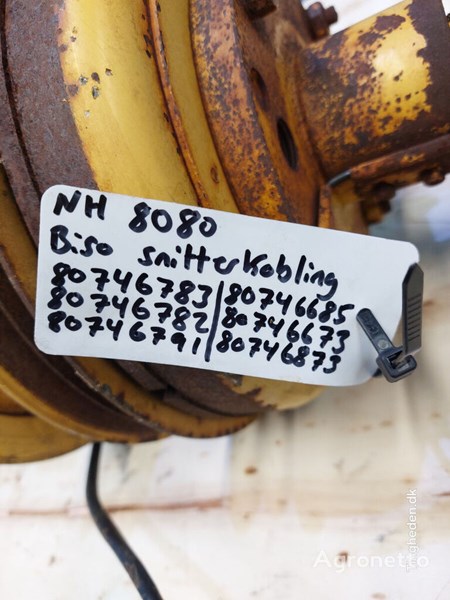 NH 8080
Biso snitterkobling
80746783 | 80746685
80746782 | 80746673
80746791 | 80746873
Agronetto